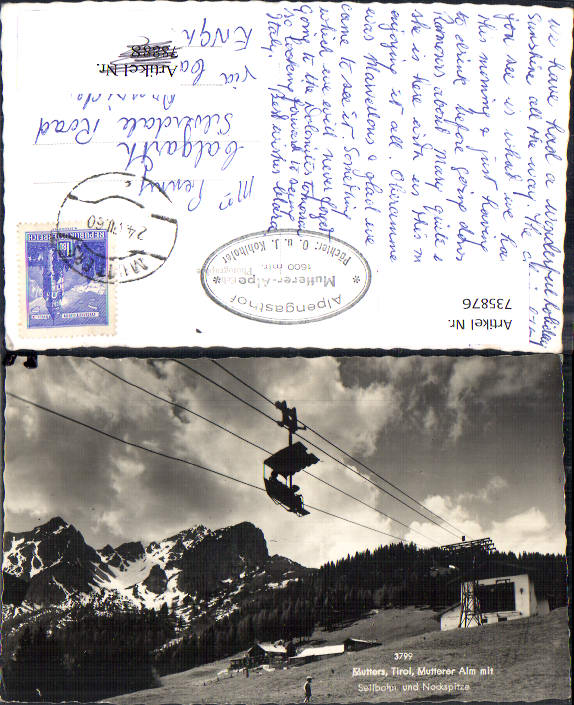 we have had a wonderful holiday
Sunshine all the way. The
you see is what we
this morning & just having
a drink before going down
Rumours about Mary quite &
she is here with us & Mum
enjoying it all. Oberammer
was Marvellous & glad we
came to see it. Something
which we will never forget
Going to the Dolomites tomorrow
So looking forward to seeing
Italy. Best wishes
Mrs Penny
Calgarth
Silverdale Road
via
Engl.
Artikel Nr.
73288
REPUBLIK ÖSTERREICH
24.VII.60
Alpengasthof
Mutterer-Alpe
1600 mtr.
Pächter: O. u. J. Kohlhofer
Photographie
Artikel Nr.
735876
3799
Mutters, Tirol, Mutterer Alm mit
Seilbahn und Nockspitze